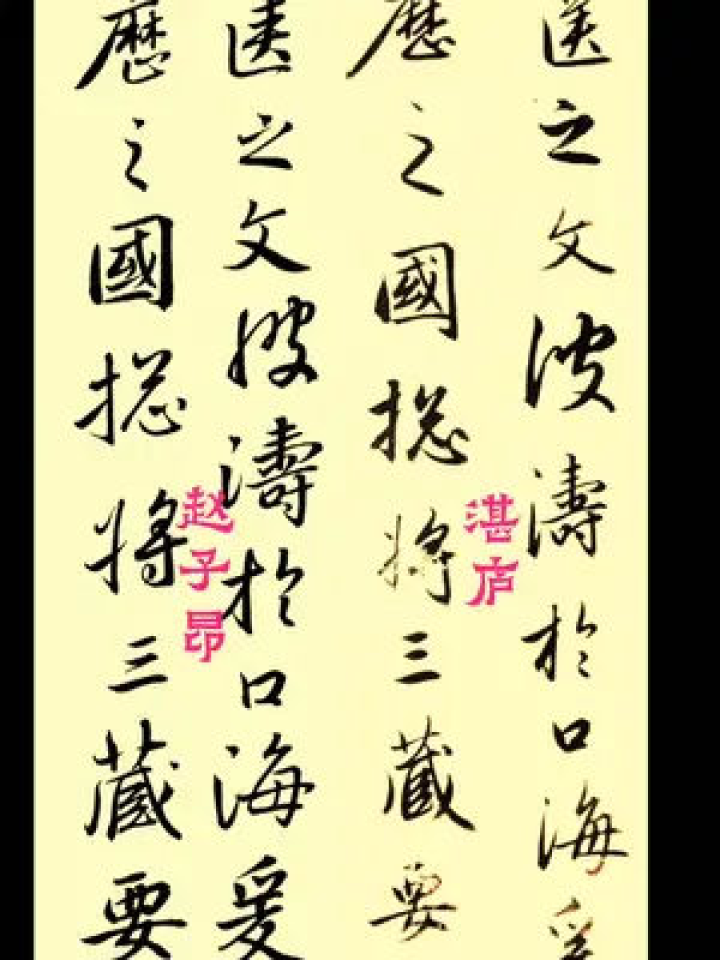 匧之文波濤於口海爰
歷之國揔將三藏要
湛庐
匧之文波濤於口海爰
歷之國揔將三藏要
赵子昂